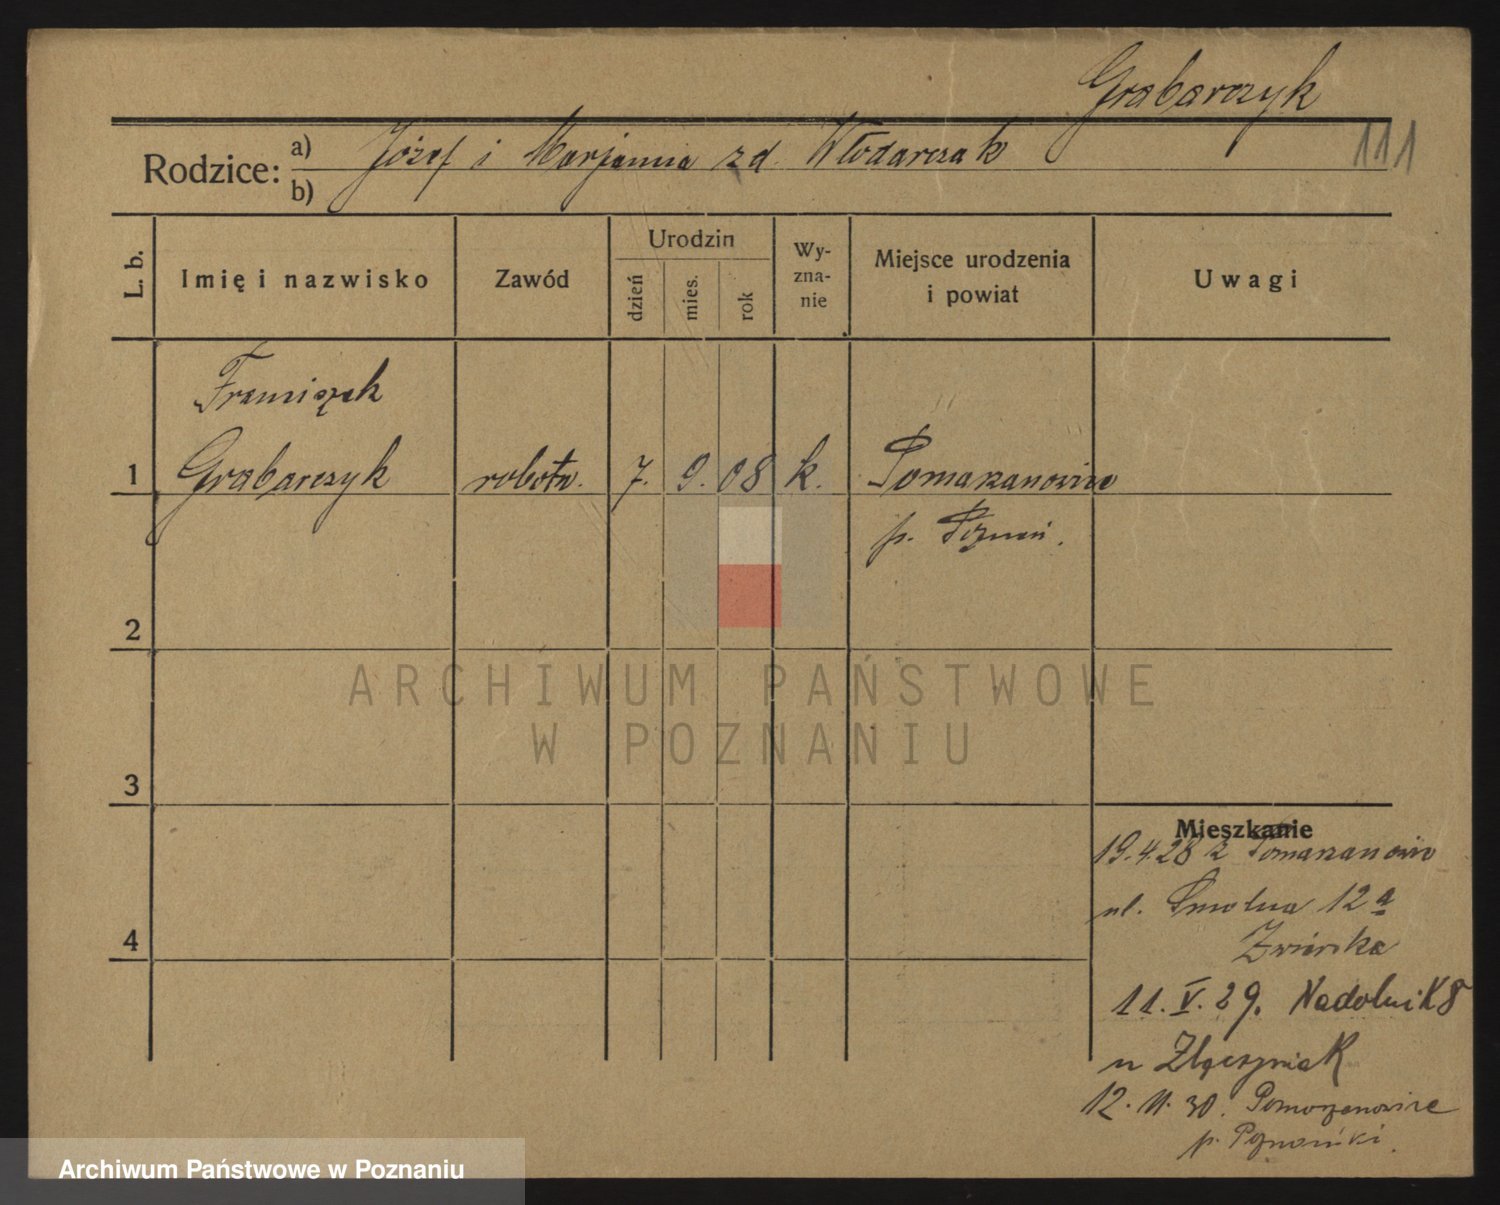 Grabarczyk
111
Rodzice: a) Józef i Marjanna zd. Włodarczak
b)
L. b.
Imię i nazwisko
Zawód
Urodzin
dzień
mies.
rok
Wy-
zna-
nie
Miejsce urodzenia
i powiat
Uwagi
Franciszek
1 Grabarczyk robotn. 7. 9. 08 k. Pomarzanowice
p. Poznań.
2
ARCHIWUM PAŃSTWOWE
W POZNANIU
3
Mieszkanie
19.4.28 z Pomarzanowic
ul. Smolna 12a
4
11.V.29. Nadolnik 8
u
12.11.30. Pomorzanowice
p. Poznański.
Archiwum Państwowe w Poznaniu